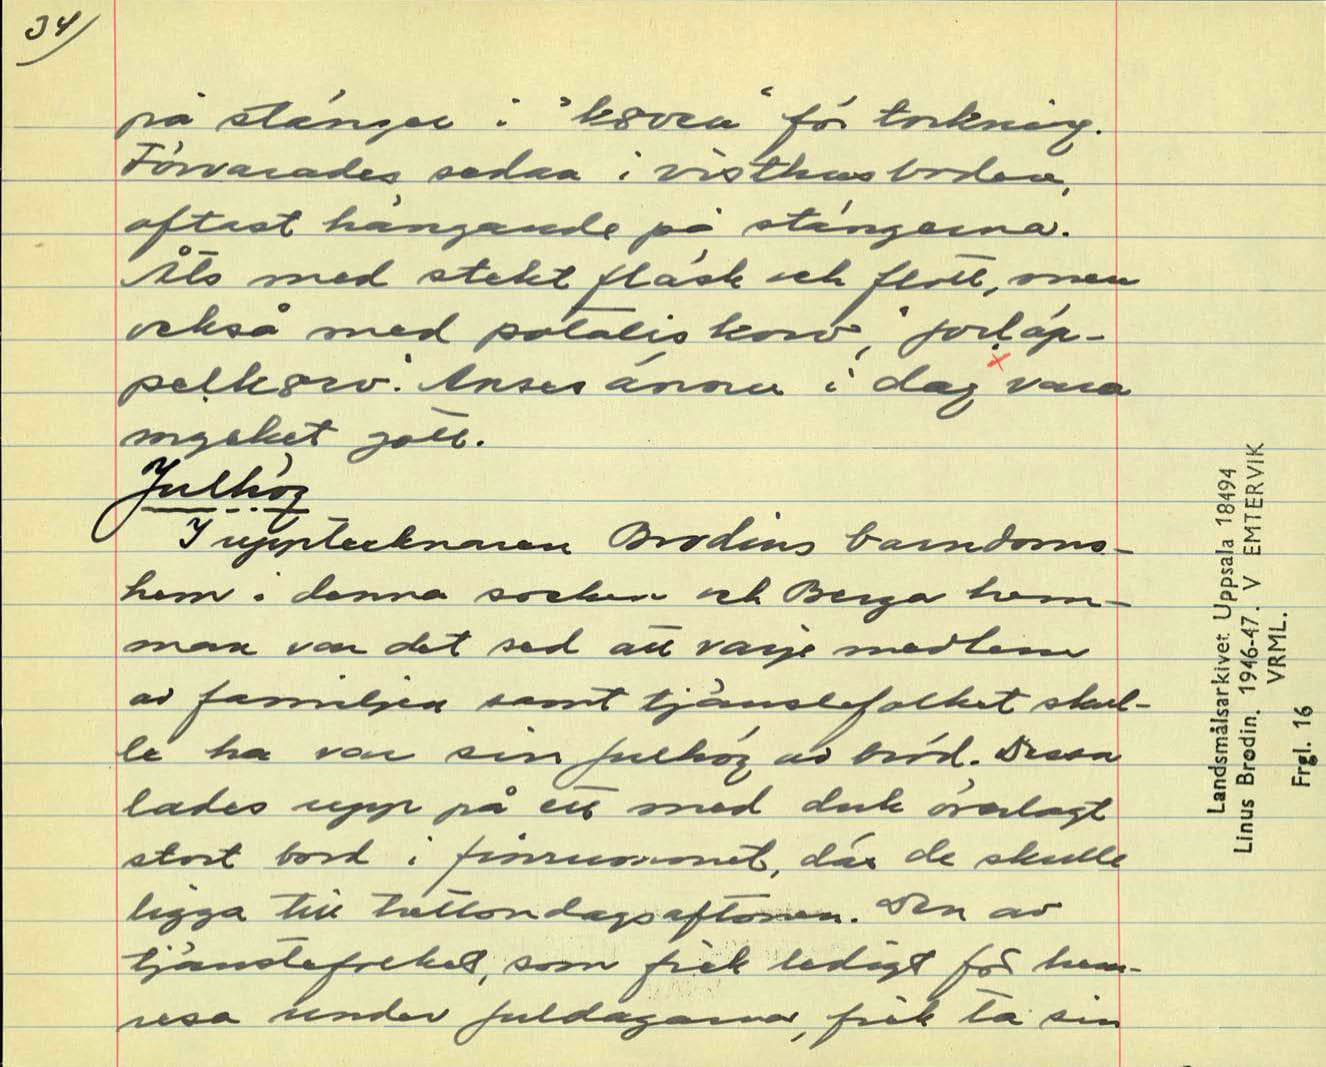 34)
på stänger i "k8ven" för torkning.
Förvarades sedan i visthusboden,
oftast hängande på stängerna.
Åts med stekt fläsk och flott, men
också med potatiskorv, "jorläp-
pelk8rv". Anses ännu i dag vara
mycket gott.
Julhög
I upptecknaren Brodins barndoms-
hem i denna socken och Berga hem-
man var det sed att varje medlem
av familjen samt tjänstefolket skul-
le ha var sin julhög av bröd. Dessa
lades upp på ett med duk överlagt
stort bord i finrummet, där de skulle
ligga till trettondagsaftonen. Den av
tjänstefolket, som fick ledigt för hem-
resa under juldagarna, fick ta sin
Landsmålsarkivet Uppsala 18494
Linus Brodin. 1946-47. V EMTERVIK
VRML.
Frgl. 16